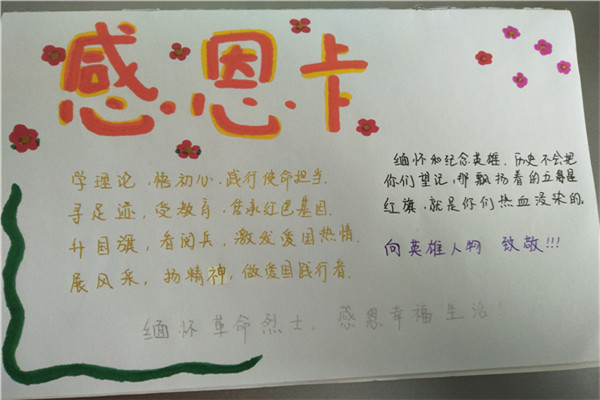 感·恩·卡
学理论,初心,践行使命担当.
寻足迹,受教育,传承红色基因.
升国旗,看阅兵,激发爱国热情.
展风采,扬精神,做爱国践行者.
缅怀和纪念英雄,历史不会把
你们望记,那飘扬着的五角星
红旗,就是你们热血浸染的。
向英雄人物 致敬!!!
缅怀革命烈士,感恩幸福生活